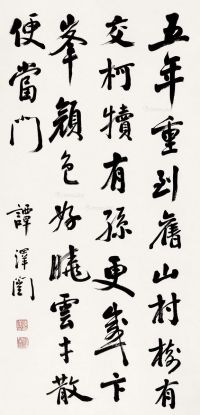 五年重到舊山村樹有
交柯犢有孫更感卞
峯顏色好曉雲才散
便當門
譚澤闓